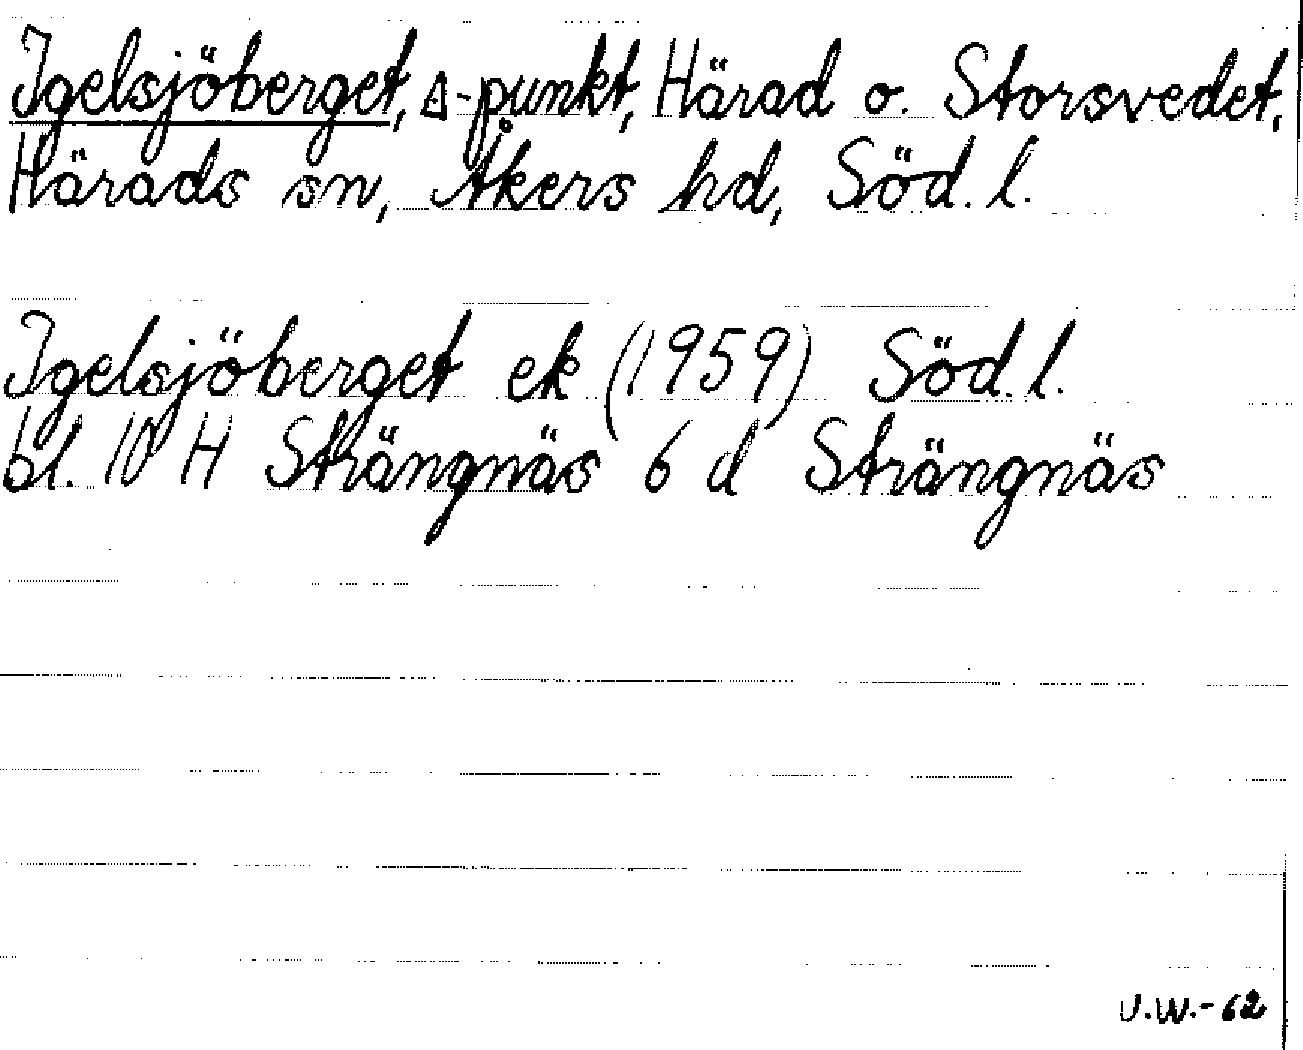 Igelsjöberget, Δ-punkt, Härad o. Storsvedet,
Härads sn, Åkers hd, Söd. l.
Igelsjöberget ek (1959) Söd. l.
bl. 10 H Strängnäs 6 d Strängnäs
U.W.-62